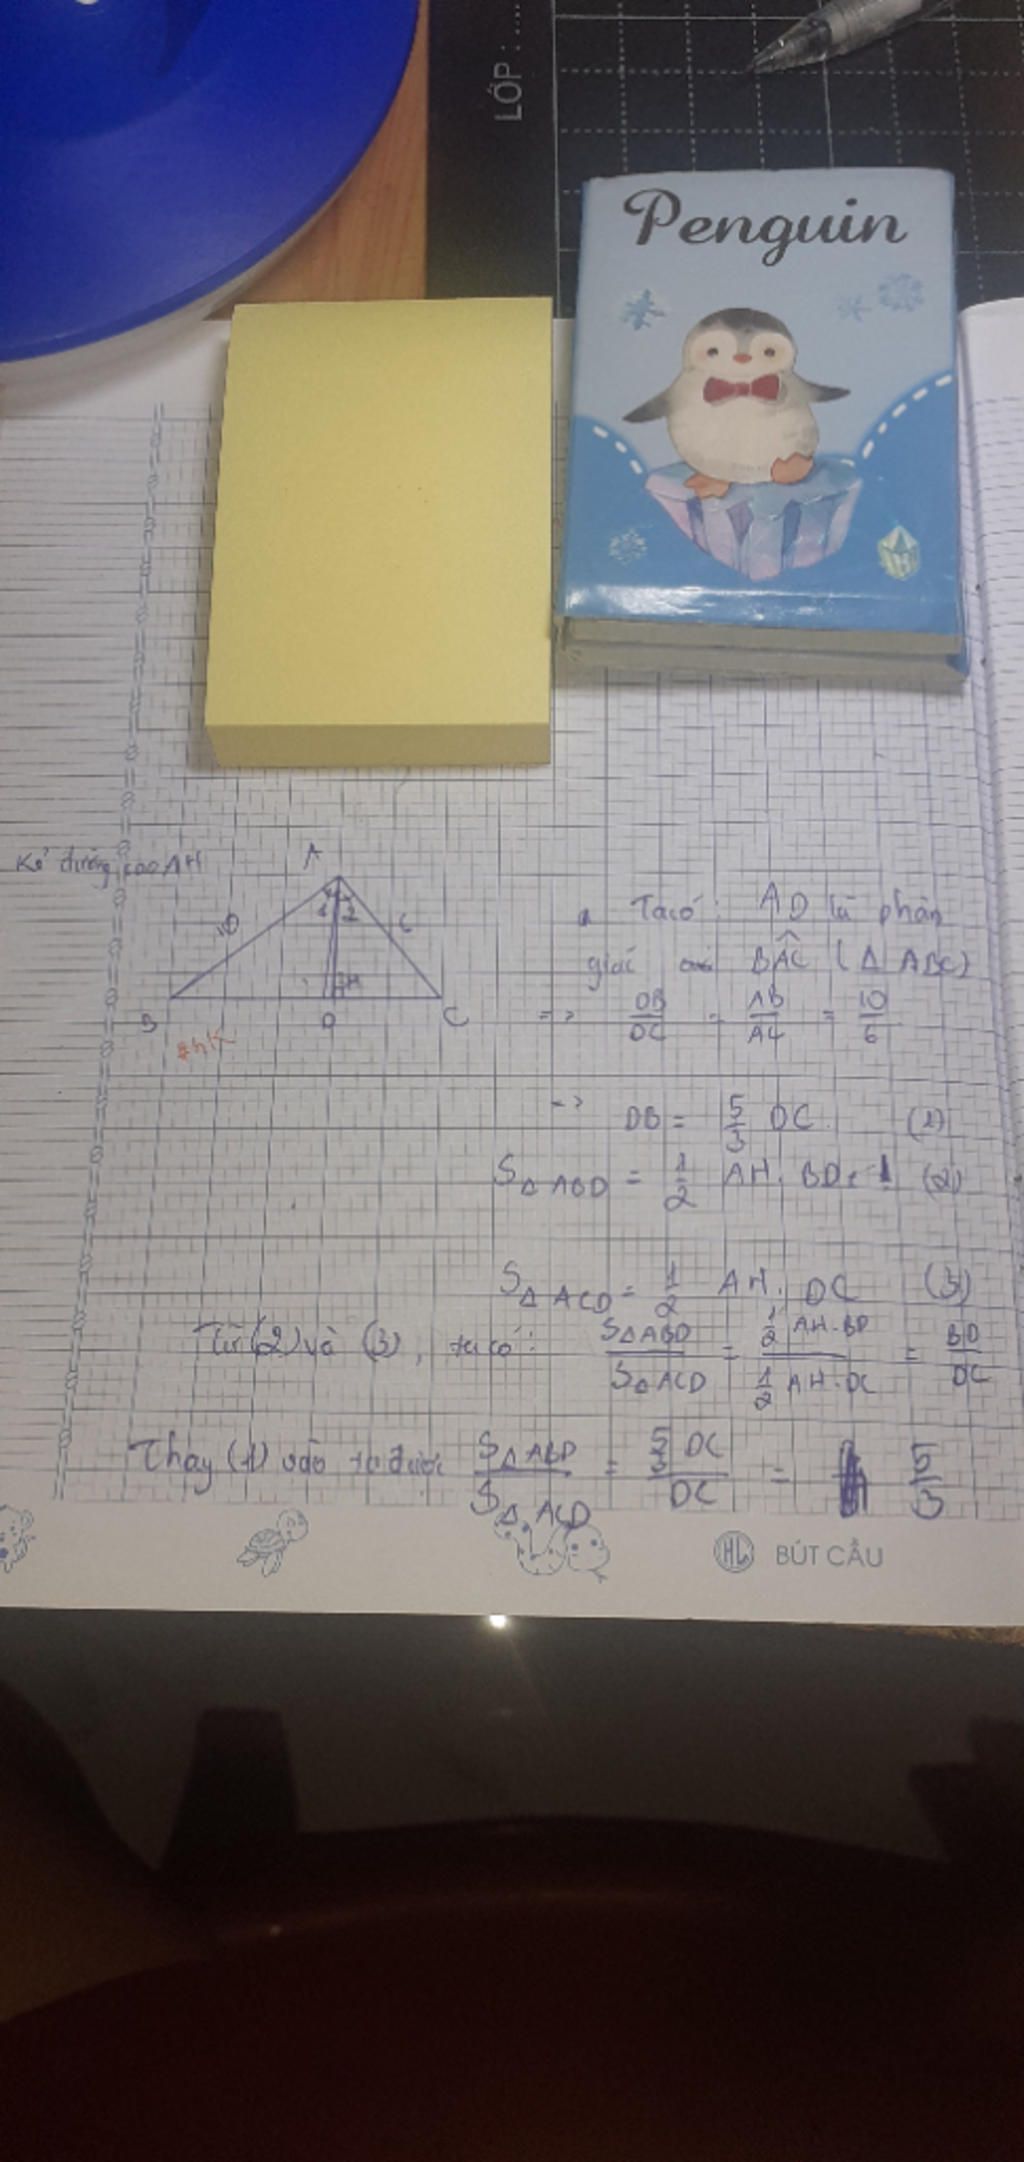 LỚP : ...
Penguin
Kẻ đường cao AH
A
10
1 2
6
H
B
D
C
Ta có : AD là phân
giác BAC (Δ ABC)
=> DB/DC = AB/AC = 10/6
=> DB = 5/3 DC (1)
S Δ ABD = 1/2 AH . BD (2)
S Δ ACD = 1/2 AH . DC (3)
Từ (2) và (3) , ta có : SΔABD/SΔACD = 1/2 AH.BD / 1/2 AH.DC = BD/DC
Thay (1) vào ta được SΔABD/SΔACD = 5/3 DC / DC = 5/3
HL BÚT CẦU